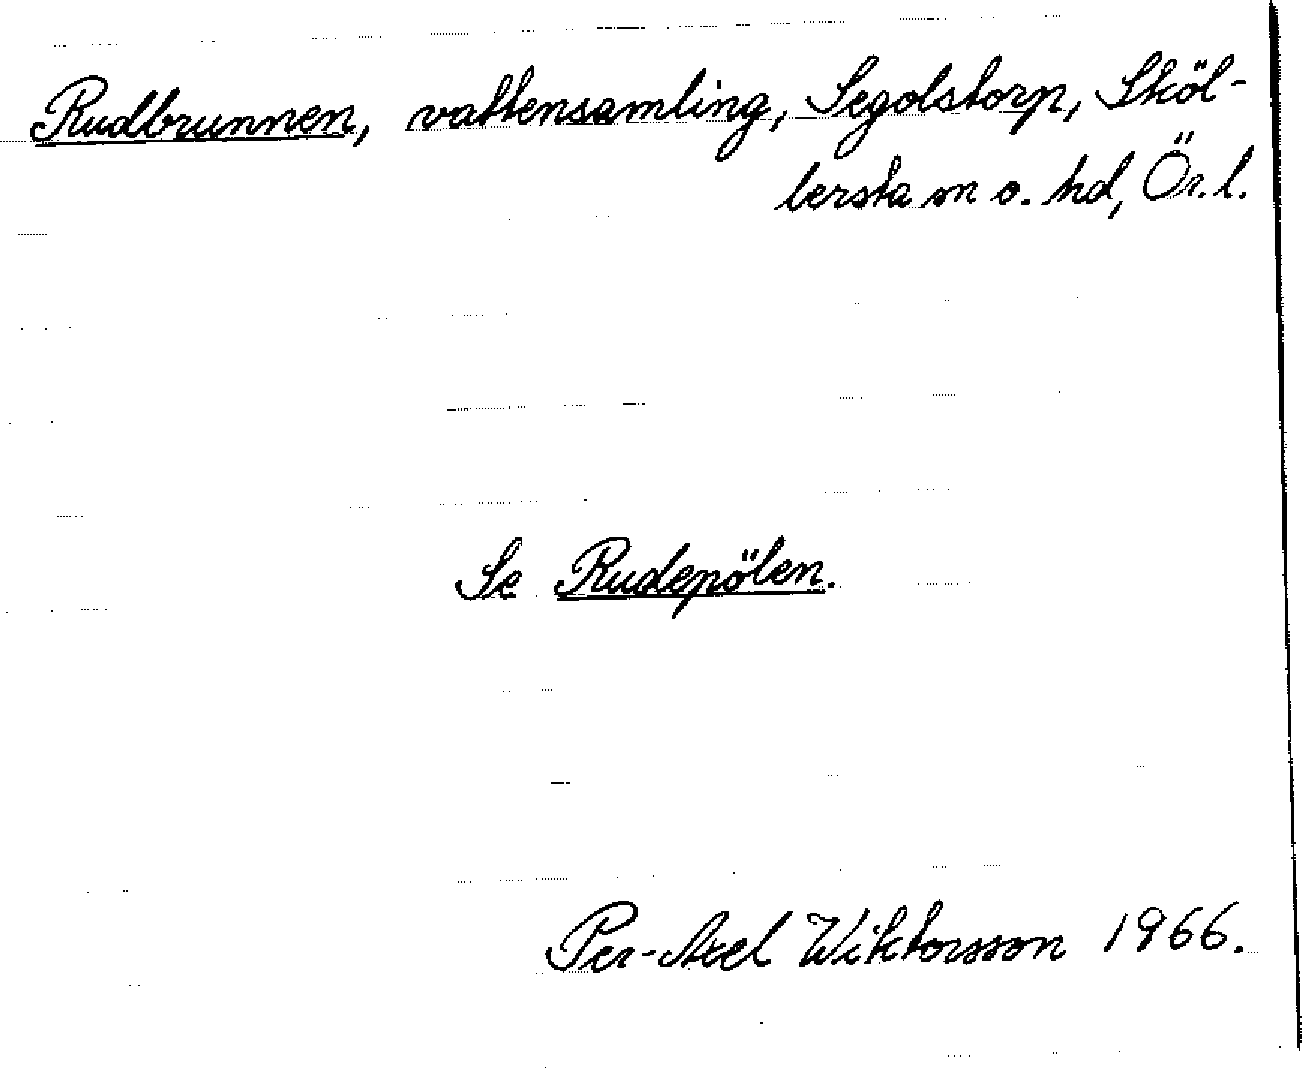 Rudbrunnen, vattensamling, Segolstorp, Sköl-
lersta sn o. hd, Ör. l.
Se Rudepölen.
Per-Axel Wiktorsson 1966.